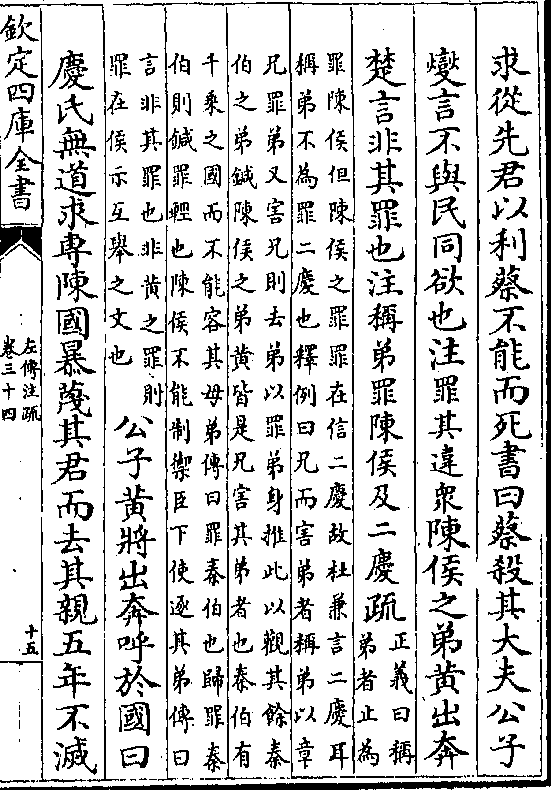 求從先君以利蔡不能而死書曰蔡殺其大夫公子
燮言不與民同欲也注罪其違衆陳侯之弟黄出奔
楚言非其罪也注稱弟罪陳侯及二慶疏
正義曰稱
弟者止為
罪陳侯但陳侯之罪罪在信二慶故杜兼言二慶耳
稱弟不為罪二慶也釋例曰兄而害弟者稱弟以章
兄罪弟又害兄則去弟以罪弟身推此以觀其餘秦
伯之弟鍼陳侯之弟黄皆是兄害其弟者也秦伯有
千乘之國而不能容其母弟傳曰罪秦伯也歸罪秦
伯則鍼罪輕也陳侯不能制禦臣下使逐其弟傳曰
言非其罪也非黄之罪則
罪在侯示互舉之文也
公子黄將出奔呼於國曰
慶氏無道求專陳國暴蔑其君而去其親五年不滅
欽定四庫全書
左傳注疏
卷三十四
十五